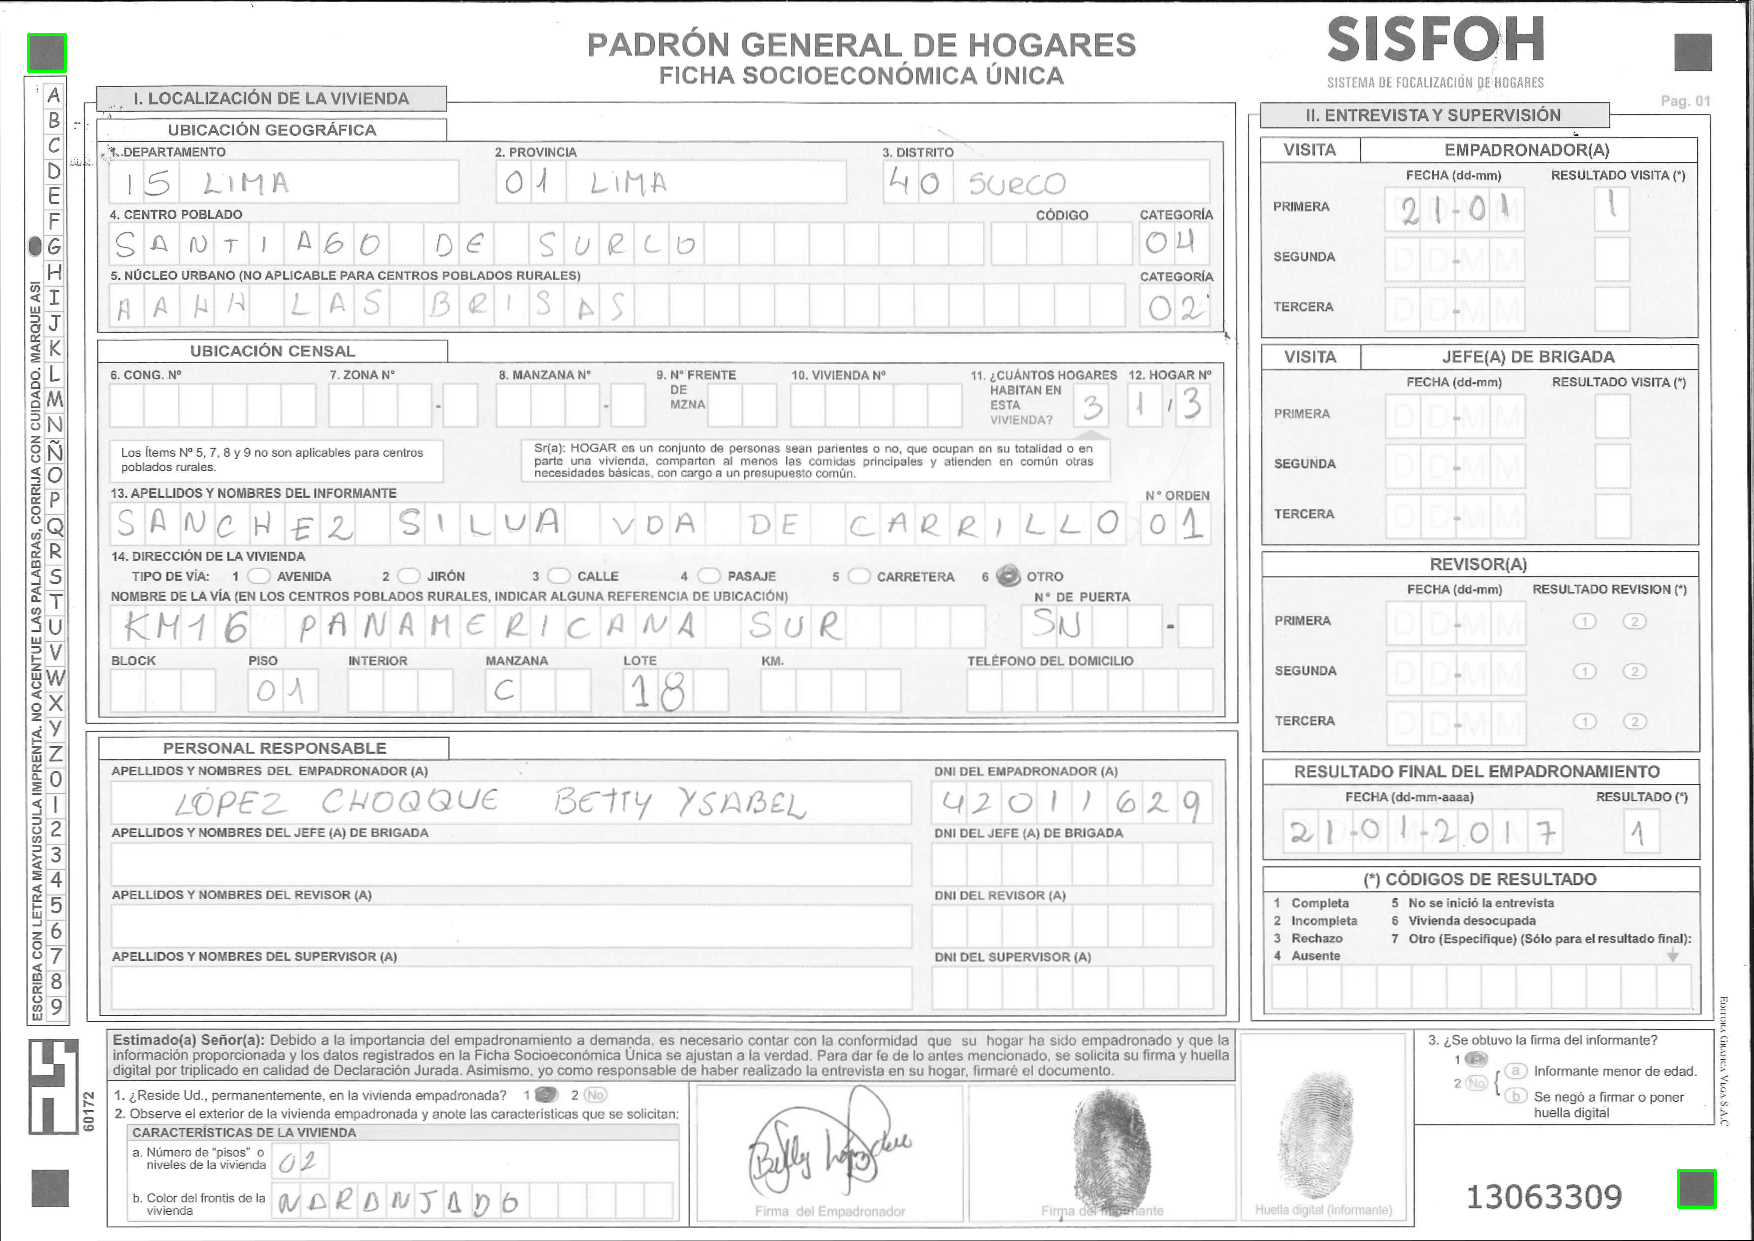 PADRÓN GENERAL DE HOGARES
FICHA SOCIOECONÓMICA ÚNICA
SISFOH
SISTEMA DE FOCALIZACIÓN DE HOGARES
Pag. 01
ESCRIBA CON LETRA MAYUSCULA IMPRENTA. NO ACENTUE LAS PALABRAS, CORRIJA CON CUIDADO. MARQUE ASI
A B C D E F G H I J K L M N Ñ O P Q R S T U V W X Y Z 0 1 2 3 4 5 6 7 8 9
I. LOCALIZACIÓN DE LA VIVIENDA
UBICACIÓN GEOGRÁFICA
1. DEPARTAMENTO 2. PROVINCIA 3. DISTRITO
15 LIMA 01 LIMA 40 SURCO
4. CENTRO POBLADO CÓDIGO CATEGORÍA
SANTIAGO DE SURCO 04
5. NÚCLEO URBANO (NO APLICABLE PARA CENTROS POBLADOS RURALES) CATEGORÍA
AAHH LAS BRISAS 02
UBICACIÓN CENSAL
6. CONG. Nº 7. ZONA Nº 8. MANZANA Nº 9. Nº FRENTE DE MZNA 10. VIVIENDA Nº 11. ¿CUÁNTOS HOGARES HABITAN EN ESTA VIVIENDA? 12. HOGAR Nº
3 1 / 3
Los Ítems Nº 5, 7, 8 y 9 no son aplicables para centros
poblados rurales.
Sr(a): HOGAR es un conjunto de personas sean parientes o no, que ocupan en su totalidad o en
parte una vivienda, comparten al menos las comidas principales y atienden en común otras
necesidades básicas, con cargo a un presupuesto común.
13. APELLIDOS Y NOMBRES DEL INFORMANTE Nº ORDEN
SANCHEZ SILVA VDA DE CARRILLO 01
14. DIRECCIÓN DE LA VIVIENDA
TIPO DE VÍA: 1 AVENIDA 2 JIRÓN 3 CALLE 4 PASAJE 5 CARRETERA 6 OTRO
NOMBRE DE LA VÍA (EN LOS CENTROS POBLADOS RURALES, INDICAR ALGUNA REFERENCIA DE UBICACIÓN) Nº DE PUERTA
KM16 PANAMERICANA SUR SN -
BLOCK PISO INTERIOR MANZANA LOTE KM. TELÉFONO DEL DOMICILIO
01 C 18
PERSONAL RESPONSABLE
APELLIDOS Y NOMBRES DEL EMPADRONADOR (A) DNI DEL EMPADRONADOR (A)
LÓPEZ CHOQQUE BETTY YSABEL 42011629
APELLIDOS Y NOMBRES DEL JEFE (A) DE BRIGADA DNI DEL JEFE (A) DE BRIGADA
APELLIDOS Y NOMBRES DEL REVISOR (A) DNI DEL REVISOR (A)
APELLIDOS Y NOMBRES DEL SUPERVISOR (A) DNI DEL SUPERVISOR (A)
II. ENTREVISTA Y SUPERVISIÓN
VISITA EMPADRONADOR(A)
FECHA (dd-mm) RESULTADO VISITA (*)
PRIMERA 21-01 1
SEGUNDA DD-MM
TERCERA DD-MM
VISITA JEFE(A) DE BRIGADA
FECHA (dd-mm) RESULTADO VISITA (*)
PRIMERA DD-MM
SEGUNDA DD-MM
TERCERA DD-MM
REVISOR(A)
FECHA (dd-mm) RESULTADO REVISION (*)
PRIMERA DD-MM 1 2
SEGUNDA DD-MM 1 2
TERCERA DD-MM 1 2
RESULTADO FINAL DEL EMPADRONAMIENTO
FECHA (dd-mm-aaaa) RESULTADO (*)
21-01-2017 1
(*) CÓDIGOS DE RESULTADO
1 Completa 5 No se inició la entrevista
2 Incompleta 6 Vivienda desocupada
3 Rechazo 7 Otro (Especifique) (Sólo para el resultado final):
4 Ausente
EDITORA GRAFICA VEGA S.A.C
60172
Estimado(a) Señor(a): Debido a la importancia del empadronamiento a demanda, es necesario contar con la conformidad que su hogar ha sido empadronado y que la
información proporcionada y los datos registrados en la Ficha Socioeconómica Única se ajustan a la verdad. Para dar fe de lo antes mencionado, se solicita su firma y huella
digital por triplicado en calidad de Declaración Jurada. Asimismo, yo como responsable de haber realizado la entrevista en su hogar, firmaré el documento.
1. ¿Reside Ud., permanentemente, en la vivienda empadronada? 1 2 No
2. Observe el exterior de la vivienda empadronada y anote las características que se solicitan:
CARACTERÍSTICAS DE LA VIVIENDA
a. Número de "pisos" o
niveles de la vivienda 02
b. Color del frontis de la
vivienda NARANJADO
Firma del Empadronador
Firma del Informante
Huella digital (Informante)
3. ¿Se obtuvo la firma del informante?
1
2 No
a Informante menor de edad.
b Se negó a firmar o poner
huella digital
13063309